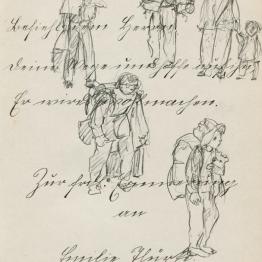 Befiehl dem Herrn
Deine Wege und hoffe auf ihn
Er wird's wohl machen.
Zur frdl. Erinnerung
an
Emilie